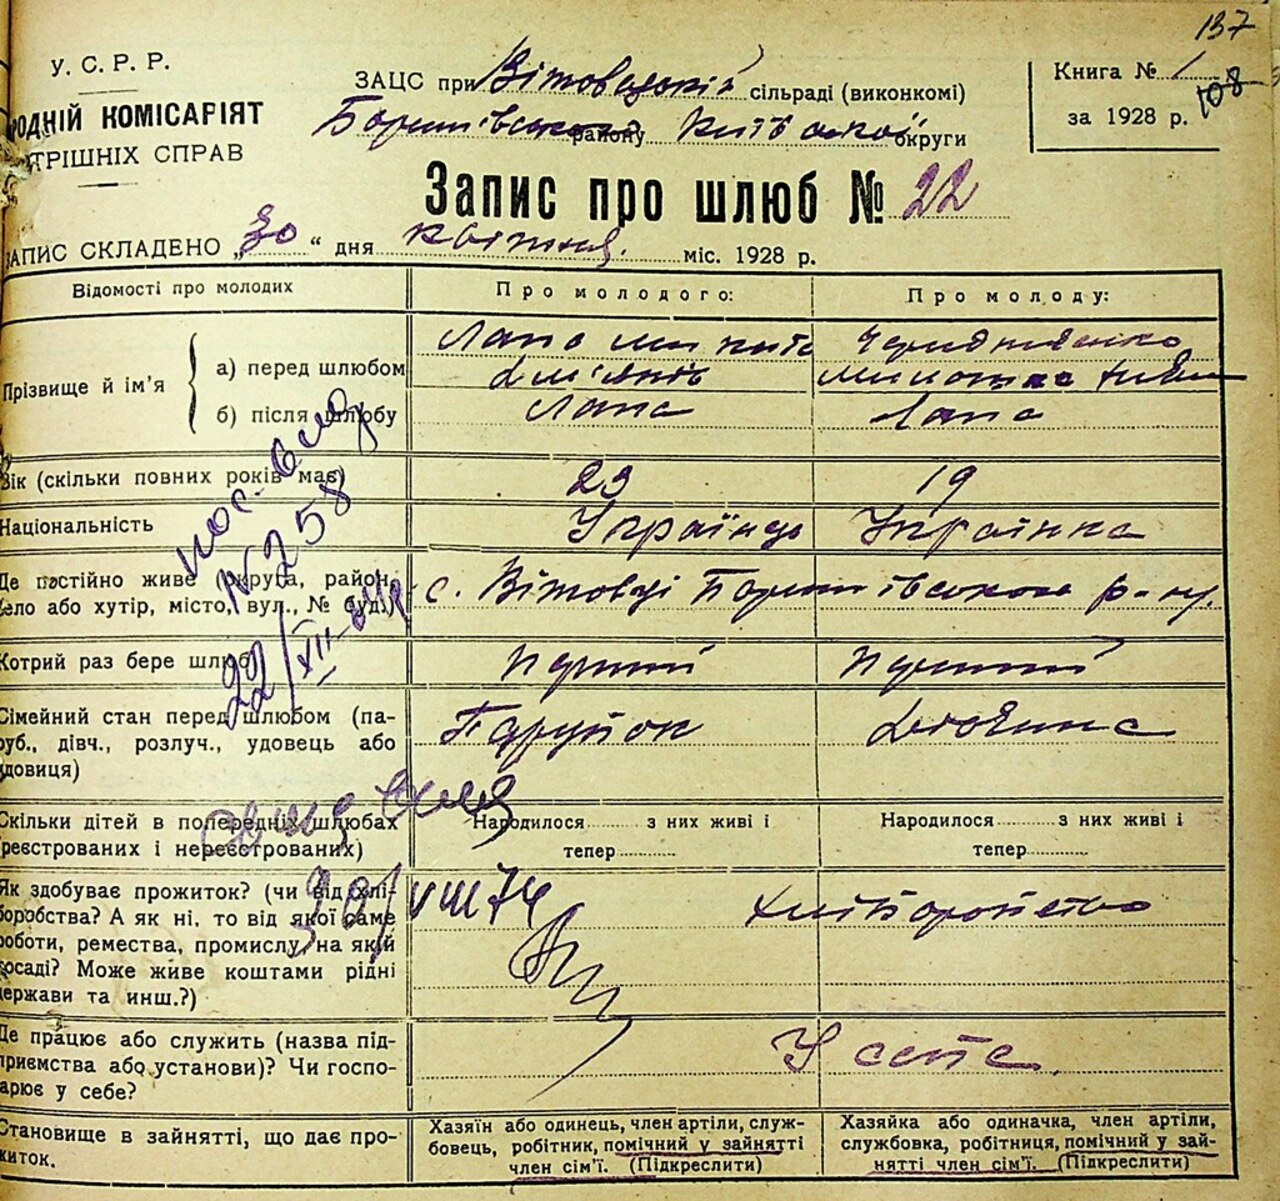 137
У. С. Р. Р.
ЗАЦС при Вітовецькій сільраді (виконкомі)
Книга № 1
108
РОДНІЙ КОМІСАРІЯТ
району Київської округи
за 1928 р.
ТРІШНІХ СПРАВ
Запис про шлюб № 22
ЗАПИС СКЛАДЕНО „30“ дня квітня міс. 1928 р.
Відомості про молодих
Про молодого:
Про молоду:
Прізвище й ім'я
а) перед шлюбом
Лапа Микита
б) після шлюбу
Лапа
Лапа
Вік (скільки повних років має)
23
19
Національність
Українець
Українка
Де постійно живе (округа, район,
село або хутір, місто, вул., № буд.)
с. Вітовці р-ну.
№ 258
22/XII-
Котрий раз бере шлюб
Перший
Перший
Сімейний стан перед шлюбом (па-
руб., дівч., розлуч., удовець або
удовиця)
Парубок
Дівчина
Скільки дітей в попередніх шлюбах
(реєстрованих і нереєстрованих)
Народилося ........ з них живі і
тепер ............
Народилося ........ з них живі і
тепер ............
Як здобуває прожиток? (чи від хлі-
боробства? А як ні, то від якої саме
роботи, ремества, промислу, на якій
посаді? Може живе коштами рідні
держави та инш.?)
30/VIII 74
Хліборобство
Де працює або служить (назва під-
приємства або установи)? Чи госпо-
дарює у себе?
У себе.
Становище в зайнятті, що дає про-
житок.
Хазяїн або одинець, член артіли, служ-
бовець, робітник, помічний у зайнятті
член сім'ї. (Підкреслити)
Хазяйка або одиначка, член артіли,
службовка, робітниця, помічний у зай-
нятті член сім'ї. (Підкреслити)